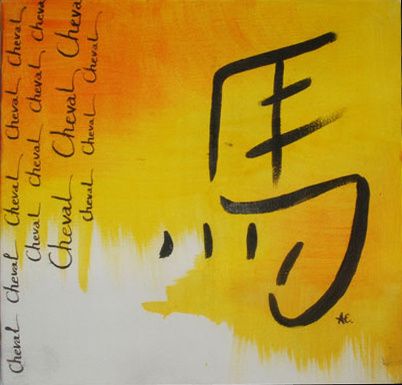 Cheval Cheval Cheval Cheval Cheval
Cheval Cheval Cheval Cheval
Cheval Cheval Cheval
Cheval Cheval Cheval
馬